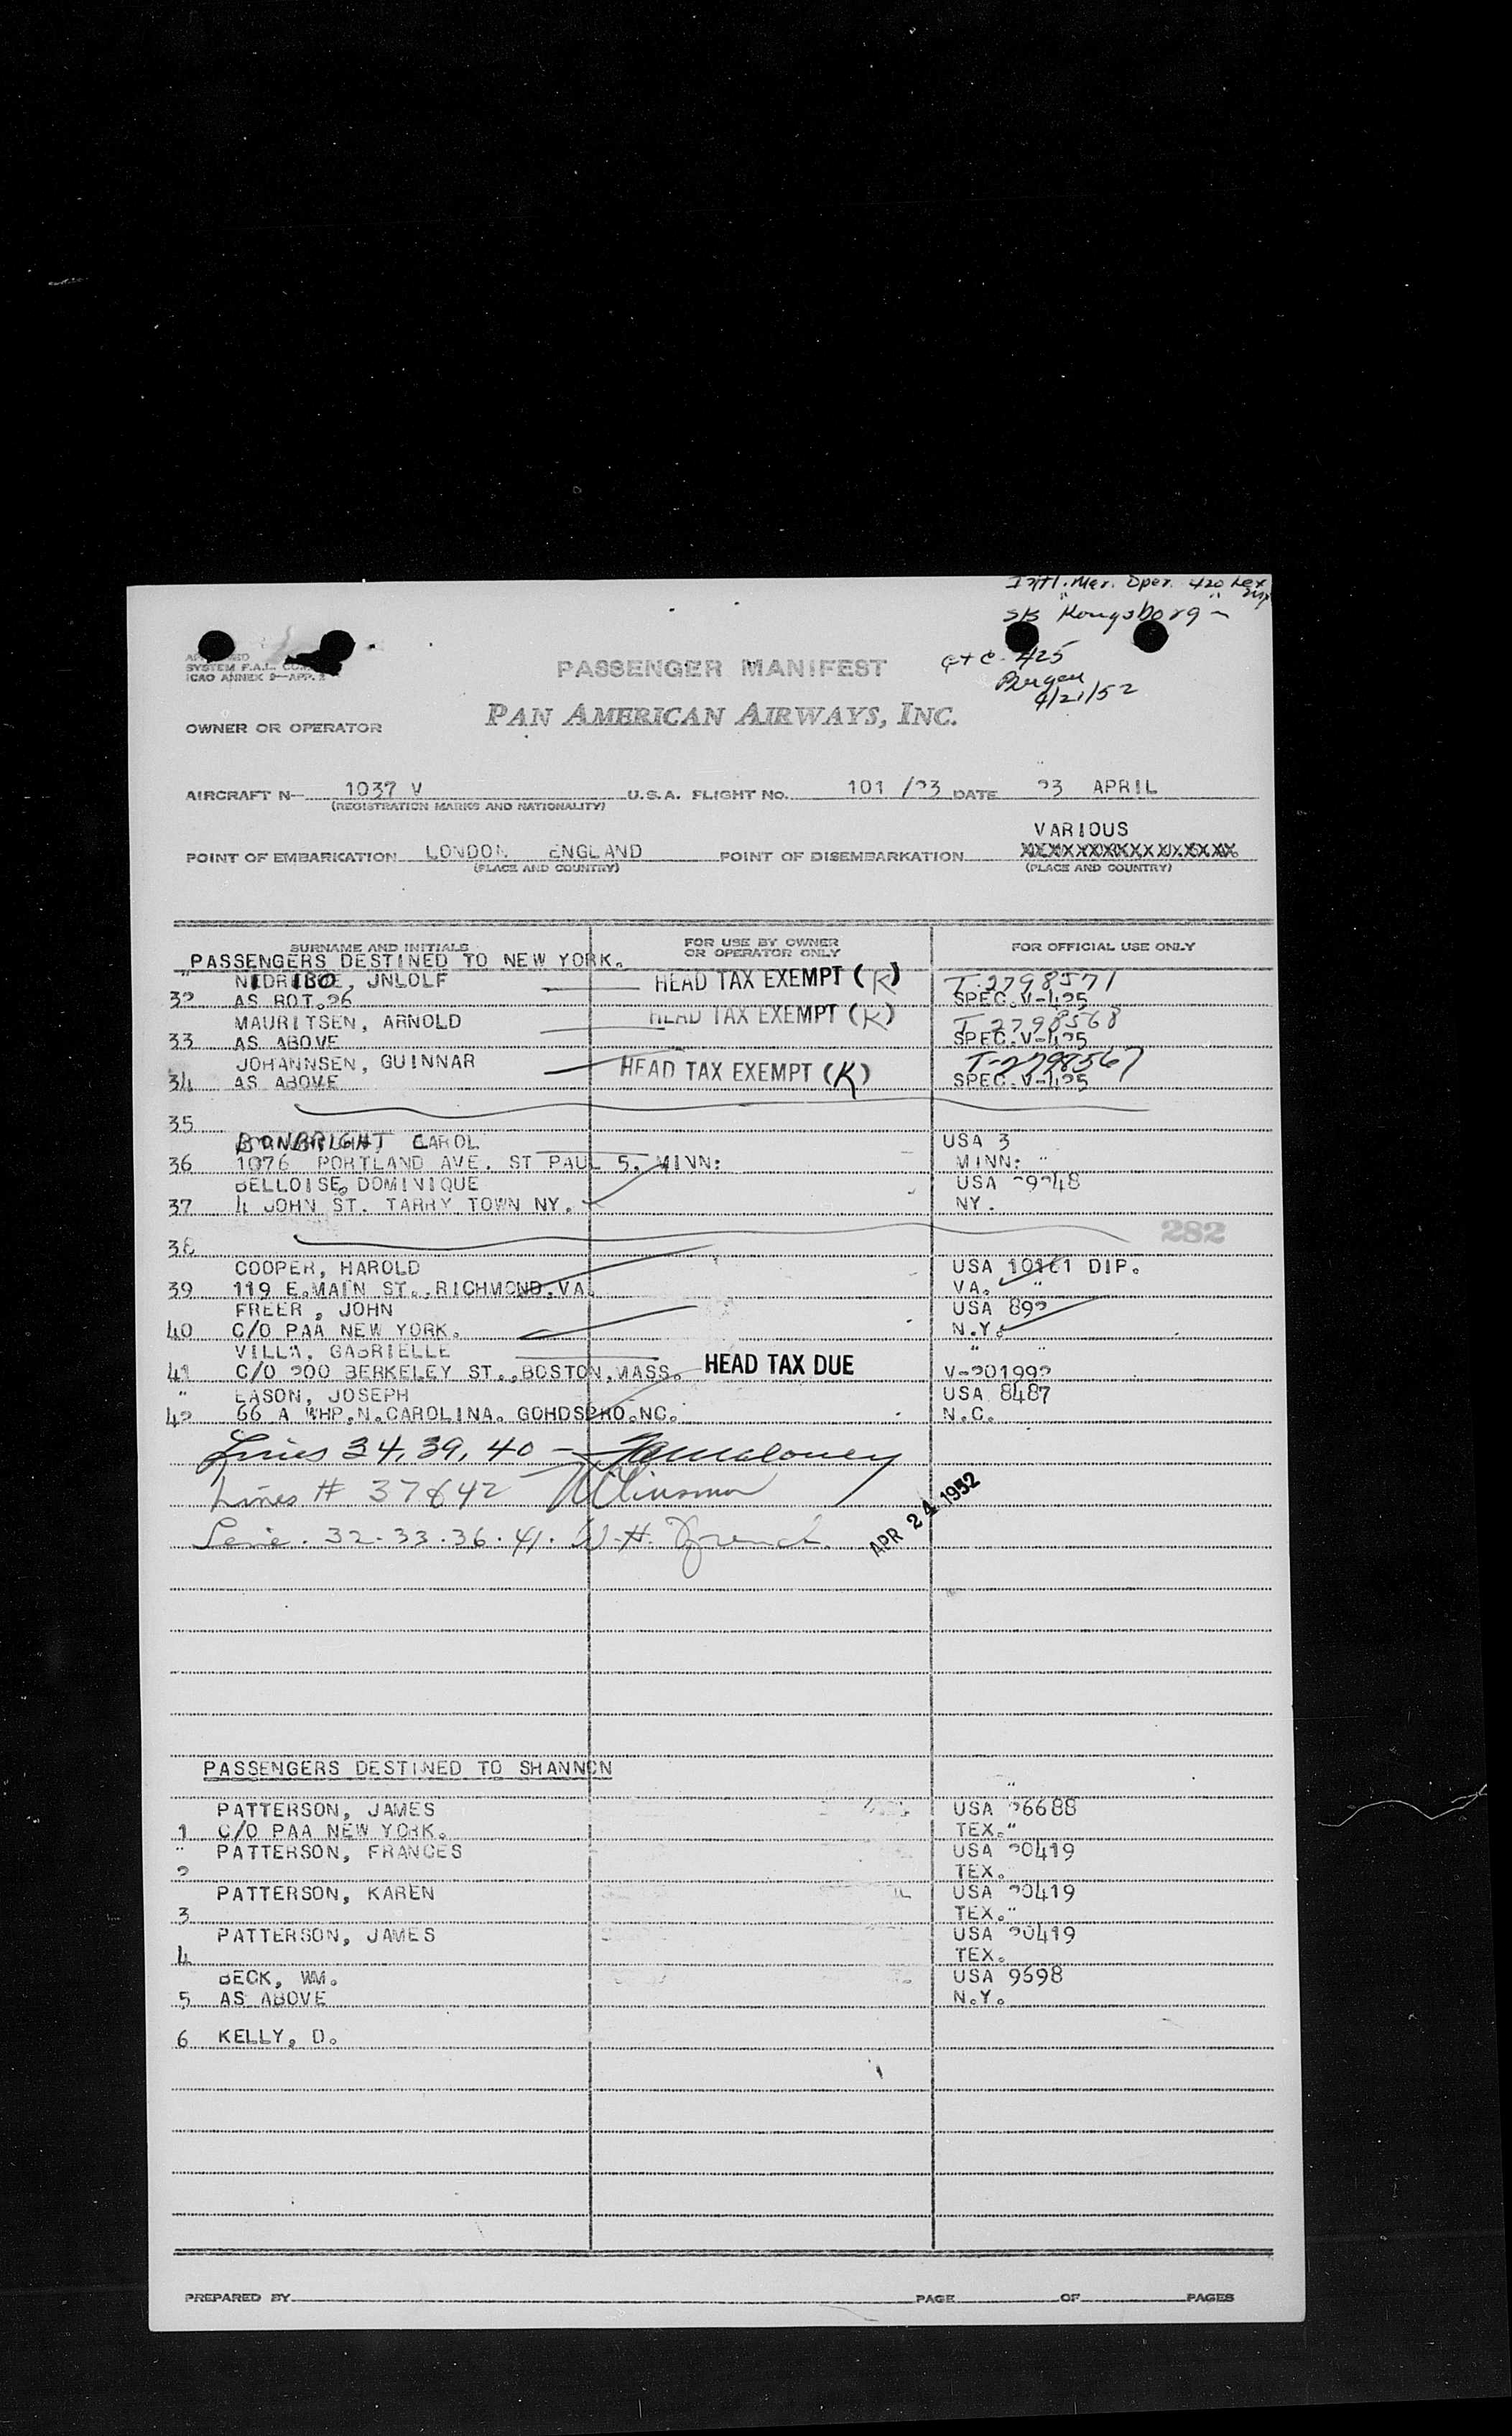 Intl. Mar. Oper. 420 Lex
S/S "Kongsborg"
G+C-425
Bergen
4/21/52
SYSTEM F.A.L.
ICAO ANNEX 9—APP. 2
PASSENGER MANIFEST
PAN AMERICAN AIRWAYS, INC.
OWNER OR OPERATOR
AIRCRAFT N— 1037 V U.S.A. FLIGHT NO. 101 /23 DATE 23 APRIL
(REGISTRATION MARKS AND NATIONALITY)
VARIOUS
POINT OF EMBARKATION LONDON ENGLAND POINT OF DISEMBARKATION
(PLACE AND COUNTRY) (PLACE AND COUNTRY)
SURNAME AND INITIALS FOR USE BY OWNER OR OPERATOR ONLY FOR OFFICIAL USE ONLY
PASSENGERS DESTINED TO NEW YORK.
" NIDRIBOE, JNLOLF HEAD TAX EXEMPT (K) T-2798571
32 AS BOT.26 SPEC.V-425
MAURITSEN, ARNOLD HEAD TAX EXEMPT (K) T-2798568
33 AS ABOVE SPEC.V-425
JOHANNSEN, GUINNAR HEAD TAX EXEMPT (K) T-2798567
34 AS ABOVE SPEC.V-425
35
BONBRIGHT CAROL USA 3
36 1076 PORTLAND AVE. ST PAUL 5, MINN: MINN: "
BELLOISE, DOMINIQUE USA 29248
37 4 JOHN ST. TARRY TOWN NY. NY.
282
38
COOPER, HAROLD USA 10161 DIP.
39 119 E.MAIN ST., RICHMOND,VA. VA. "
FREER, JOHN USA 892
40 C/O PAA NEW YORK. N.Y.
VILLA, GABRIELLE " "
41 C/O 200 BERKELEY ST., BOSTON,MASS. HEAD TAX DUE V-201992
" EASON, JOSEPH USA 8487
42 66 A WHP.N.CAROLINA. GOHDSBRO.NC. N.C.
Lines 34, 39, 40 — Maloney
Lines # 37 & 42
Line. 32-33-36-41. W.H. French
APR 24 1952
PASSENGERS DESTINED TO SHANNON
"
PATTERSON, JAMES USA 26688
1 C/O PAA NEW YORK. TEX."
" PATTERSON, FRANCES USA 20419
2 TEX.
PATTERSON, KAREN USA 20419
3 TEX."
PATTERSON, JAMES USA 20419
4 TEX.
BECK, WM. USA 9698
5 AS ABOVE N.Y.
6 KELLY, D.
PREPARED BY PAGE OF PAGES